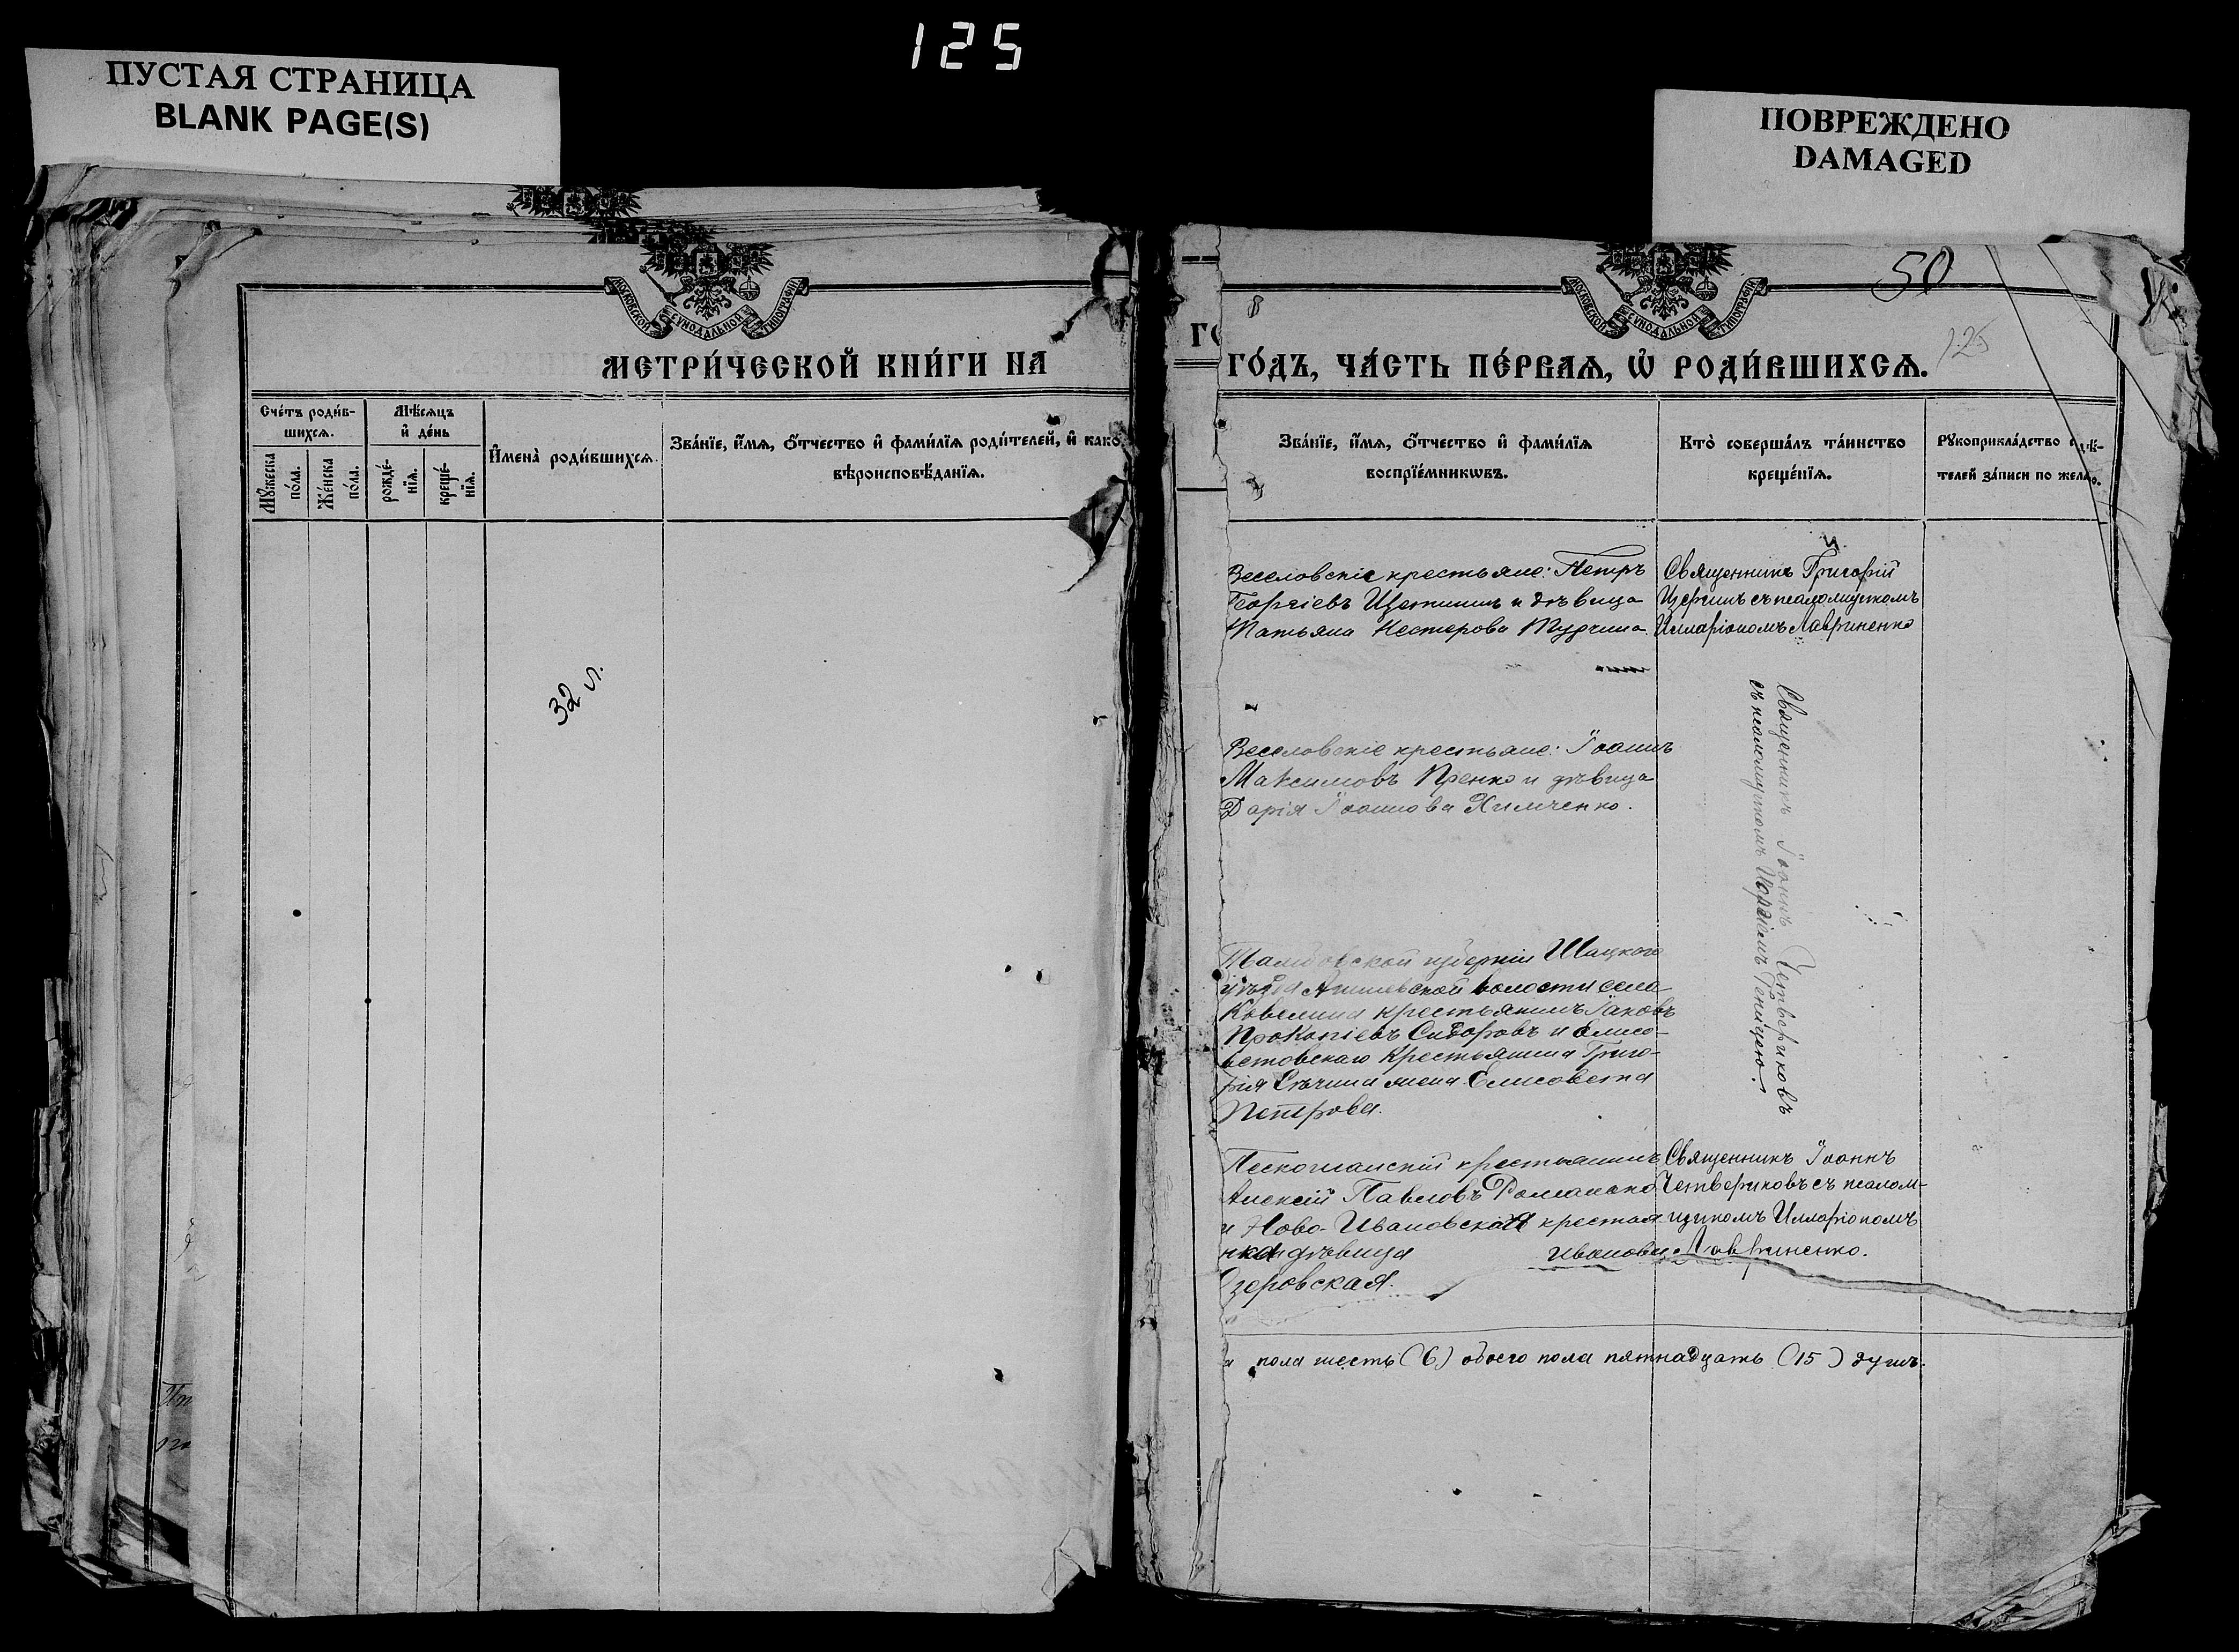 125
ПУСТАЯ СТРАНИЦА
BLANK PAGE(S)
ПОВРЕЖДЕНО
DAMAGED
МОСКОВСКОЙ СУНОДАЛЬНОЙ ТИПОГРАФІИ
МЕТРИ́ЧЕСКОЙ КНИ́ГИ НА
Сче́тъ роди́в-
шихсѧ.
Мѣ́сѧцъ
и҆ де́нь
Мꙋ́жеска
по́ла.
Же́нска
по́ла.
рожде́-
нїѧ.
креще́-
нїѧ.
И҆мена̀ роди́вшихсѧ.
Зва́нїе, и҆́мѧ, ѻ҆́тчество и҆ фами́лїѧ роди́телей, и҆ како
вѣроисповѣ́данїѧ.
32 л.
МОСКОВСКОЙ СУНОДАЛЬНОЙ ТИПОГРАФІИ
50
125
ГО́ДЪ, ЧА́СТЬ ПЕ́РВАѦ, Ѡ҆ РОДИ́ВШИХСѦ.
Зва́нїе, и҆́мѧ, ѻ҆́тчество и҆ фами́лїѧ
воспрїе́мникѡвъ.
Кто̀ соверша́лъ та́инство
креще́нїѧ.
Рꙋкоприкла́дство
телей за́писи по
Веселовскіе крестьяне: Петръ
Георгіевъ Щетинин и дѣвица
Татьяна Нестерова Турчина.
Священникъ Григорій
съ псаломщикомъ
Илларіономъ Лавриненко
Веселовскіе крестьяне: Іоаннъ
Максимовъ Пренко и дѣвица
Дарія Іоаннова Химченко.
Священникъ Іоаннъ Четвериковъ
съ псаломщикомъ
Тамбовской губерніи Шацкаго
уѣзда волости села
крестьянинъ Іаковъ
Прокопіевъ Сидоровъ и Елисо-
ветовскаго крестьянина Григо-
рія жена Елисовета
Петрова.
крестьянинъ
Алексій Павловъ Романенко
и Ново-Ивановская крестья
нка дѣвица Иванова
Озеровская.
Священникъ Іоаннъ
Четвериковъ съ псалом-
щикомъ Илларіономъ
Лавриненко.
а пола шесть (6) обоего пола пятнадцать (15) душъ.